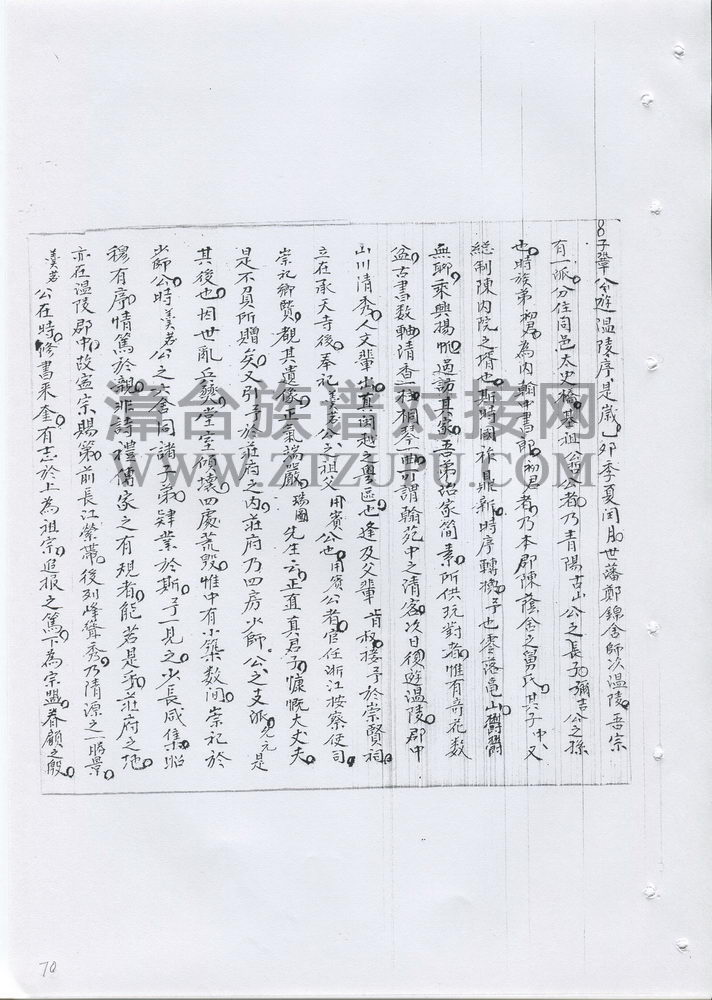 8子鞏公遊溫陵序是歲卯季夏閏月世藩鄭錦舍師次溫陵吾宗
有一派分住同邑太史橋基祖公公者乃青陽古山公之長子彌吉公之孫
也時族弟初君為內翰中書郎初君者乃本郡陳蔭舍之舅氏其子中又
總制陳內院之壻也斯時國祚鼎新時序轉換予也零落龜山鬱鬱
無聊乘興揚帆過訪其家吾弟治家簡素所供玩對者惟有奇花数
盆古書数軸清香一柱桐琴一曲可謂翰苑中之清客次日復遊溫陵郡中
山川清秀人文輩出真閩越之奧區也逢及父輩肯叔接予於崇賢祠
立在承天寺後奉祀羙若公之祖父用賓公也用賓公者官任浙江按察使司
崇祀鄉賢覩其遺像正氣端嚴瑞圖先生云正直真君子慷慨大丈夫
是不負所贈矣又引予於莊府之內莊府乃四房少師公之支派允元是
其後也因世亂丘燹堂室傾壞四處荒毀惟中有小築数间崇祀於
少師公時羙若公之六舍同諸子弟肄業於斯予一見之少長咸集昭
穆有序情篤於親非詩禮傳家之有規者能若是乎莊府之地
亦在溫陵郡中故憲宗賜第前長江縈帶後列峰聳秀乃清源之一勝景
羙若公在時修書來奎有志於上為祖宗追报之篤下為宗盟眷顧之殷
漳台族谱对接网
WWW.ZTZUPU.COM
70